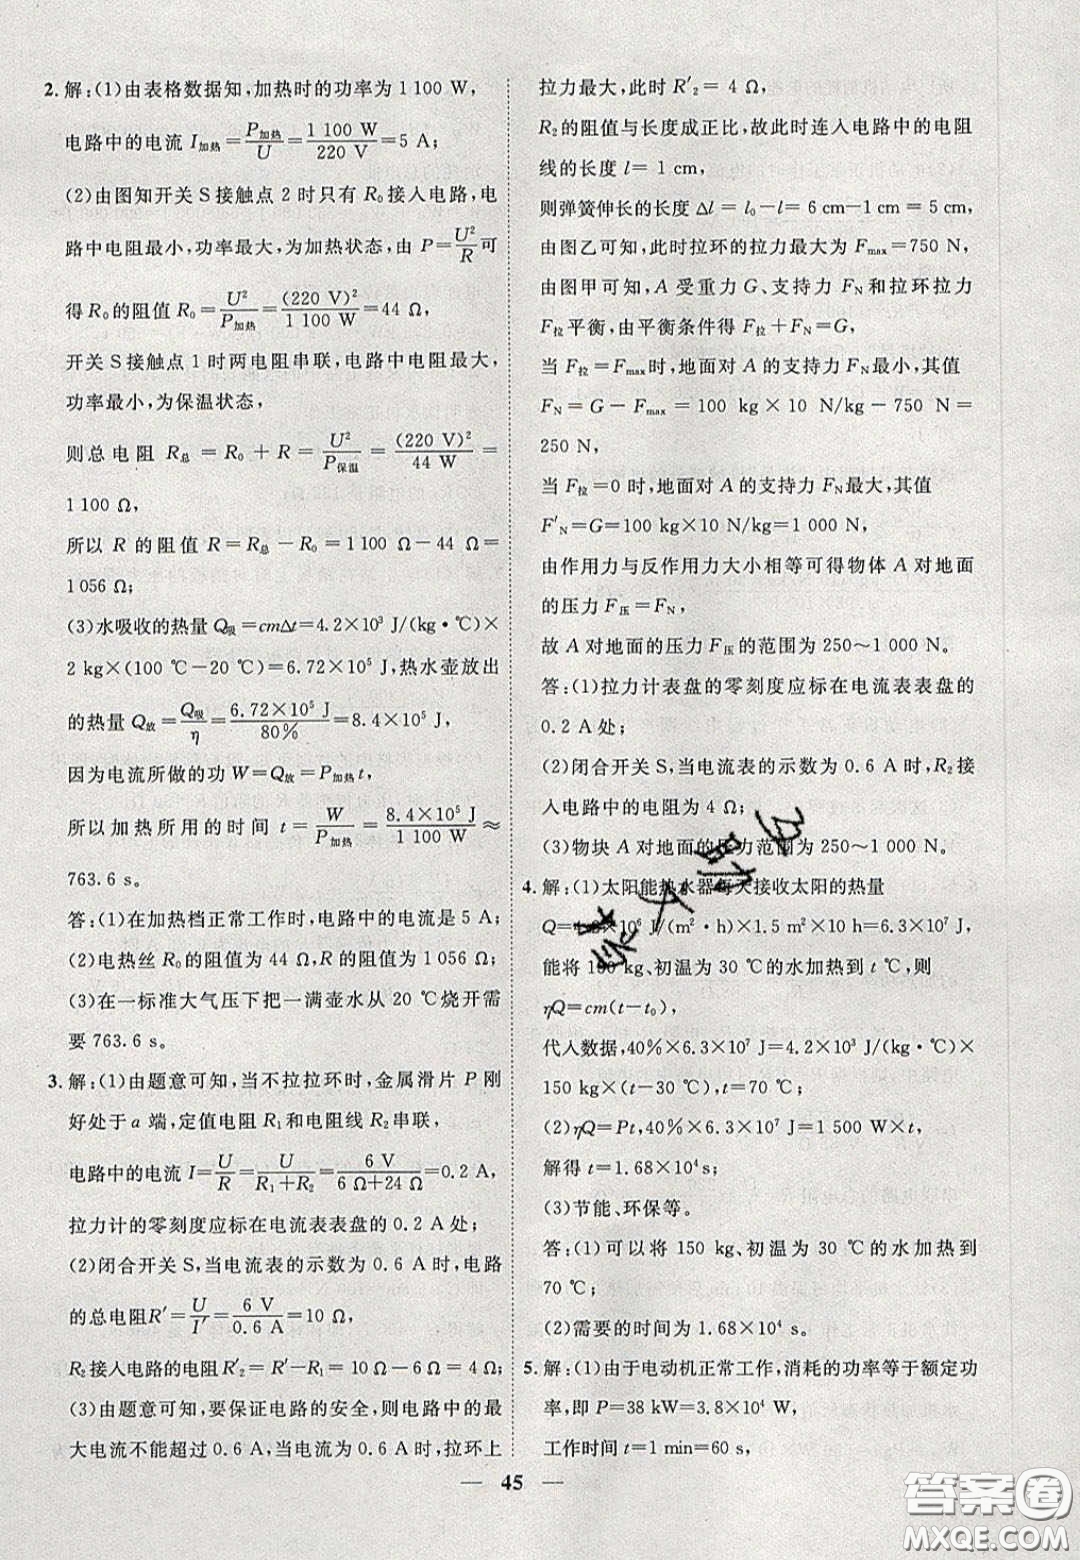 2. 解:(1)由表格数据知,加热时的功率为 1 100 W,
电路中的电流 I加热=P加热/U=1 100 W/220 V=5 A;
(2)由图知开关 S 接触点 2 时只有 R₀ 接入电路,电
路中电阻最小,功率最大,为加热状态,由 P=U²/R 可
得 R₀ 的阻值 R₀=U²/P加热=(220 V)²/1 100 W=44 Ω,
开关 S 接触点 1 时两电阻串联,电路中电阻最大,
功率最小,为保温状态,
则总电阻 R总=R₀+R=U²/P保温=(220 V)²/44 W=
1 100 Ω,
所以 R 的阻值 R=R总-R₀=1 100 Ω-44 Ω=
1 056 Ω;
(3)水吸收的热量 Q吸=cmΔt=4.2×10³ J/(kg·℃)×
2 kg×(100 ℃-20 ℃)=6.72×10⁵ J,热水壶放出
的热量 Q放=Q吸/η=6.72×10⁵ J/80%=8.4×10⁵ J,
因为电流所做的功 W=Q放=P加热t,
所以加热所用的时间 t=W/P加热=8.4×10⁵ J/1 100 W≈
763.6 s。
答:(1)在加热档正常工作时,电路中的电流是 5 A;
(2)电热丝 R₀的阻值为 44 Ω,R 的阻值为 1 056 Ω;
(3)在一标准大气压下把一满壶水从 20 ℃烧开需
要 763.6 s。
3. 解:(1)由题意可知,当不拉拉环时,金属滑片 P 刚
好处于 a 端,定值电阻 R₁和电阻线 R₂串联,
电路中的电流 I=U/R=U/(R₁+R₂)=6 V/(6 Ω+24 Ω)=0.2 A,
拉力计的零刻度应标在电流表表盘的 0.2 A 处;
(2)闭合开关 S,当电流表的示数为 0.6 A 时,电路
的总电阻R′=U/I′=6 V/0.6 A=10 Ω,
R₂接入电路的电阻 R′₂=R′-R₁=10 Ω-6 Ω=4 Ω;
(3)由题意可知,要保证电路的安全,则电路中的最
大电流不能超过 0.6 A,当电流为 0.6 A 时,拉环上
拉力最大,此时 R′₂=4 Ω,
R₂ 的阻值与长度成正比,故此时连入电路中的电阻
线的长度 l=1 cm,
则弹簧伸长的长度 Δl=l₀-l=6 cm-1 cm=5 cm,
由图乙可知,此时拉环的拉力最大为 Fmax=750 N,
由图甲可知,A 受重力 G、支持力 FN 和拉环拉力
F拉平衡,由平衡条件得 F拉+FN=G,
当 F拉=Fmax时,地面对 A 的支持力 FN最小,其值
FN=G-Fmax=100 kg×10 N/kg-750 N=
250 N,
当 F拉=0时,地面对 A 的支持力 FN最大,其值
F′N=G=100 kg×10 N/kg=1 000 N,
由作用力与反作用力大小相等可得物体 A 对地面
的压力 F压=FN,
故 A 对地面的压力 F压的范围为 250~1 000 N。
答:(1)拉力计表盘的零刻度应标在电流表表盘的
0.2 A 处;
(2)闭合开关 S,当电流表的示数为 0.6 A 时,R₂接
入电路中的电阻为 4 Ω;
(3)物块 A 对地面的压力范围为 250~1 000 N。
4. 解:(1)太阳能热水器每天接收太阳的热量
Q= ×10⁶ J/(m²·h)×1.5 m²×10 h=6.3×10⁷ J,
能将 150 kg、初温为 30 ℃的水加热到 t ℃,则
ηQ=cm(t-t₀),
代入数据,40%×6.3×10⁷ J=4.2×10³ J/(kg·℃)×
150 kg×(t-30 ℃),t=70 ℃;
(2)ηQ=Pt,40%×6.3×10⁷ J=1 500 W×t,
解得 t=1.68×10⁴ s;
(3)节能、环保等。
答:(1)可以将 150 kg、初温为 30 ℃的水加热到
70 ℃;
(2)需要的时间为 1.68×10⁴ s。
5. 解:(1)由于电动机正常工作,消耗的功率等于额定功
率,即 P=38 kW=3.8×10⁴ W,
工作时间 t=1 min=60 s,
— 45 —
答案圈
MXQE.COM